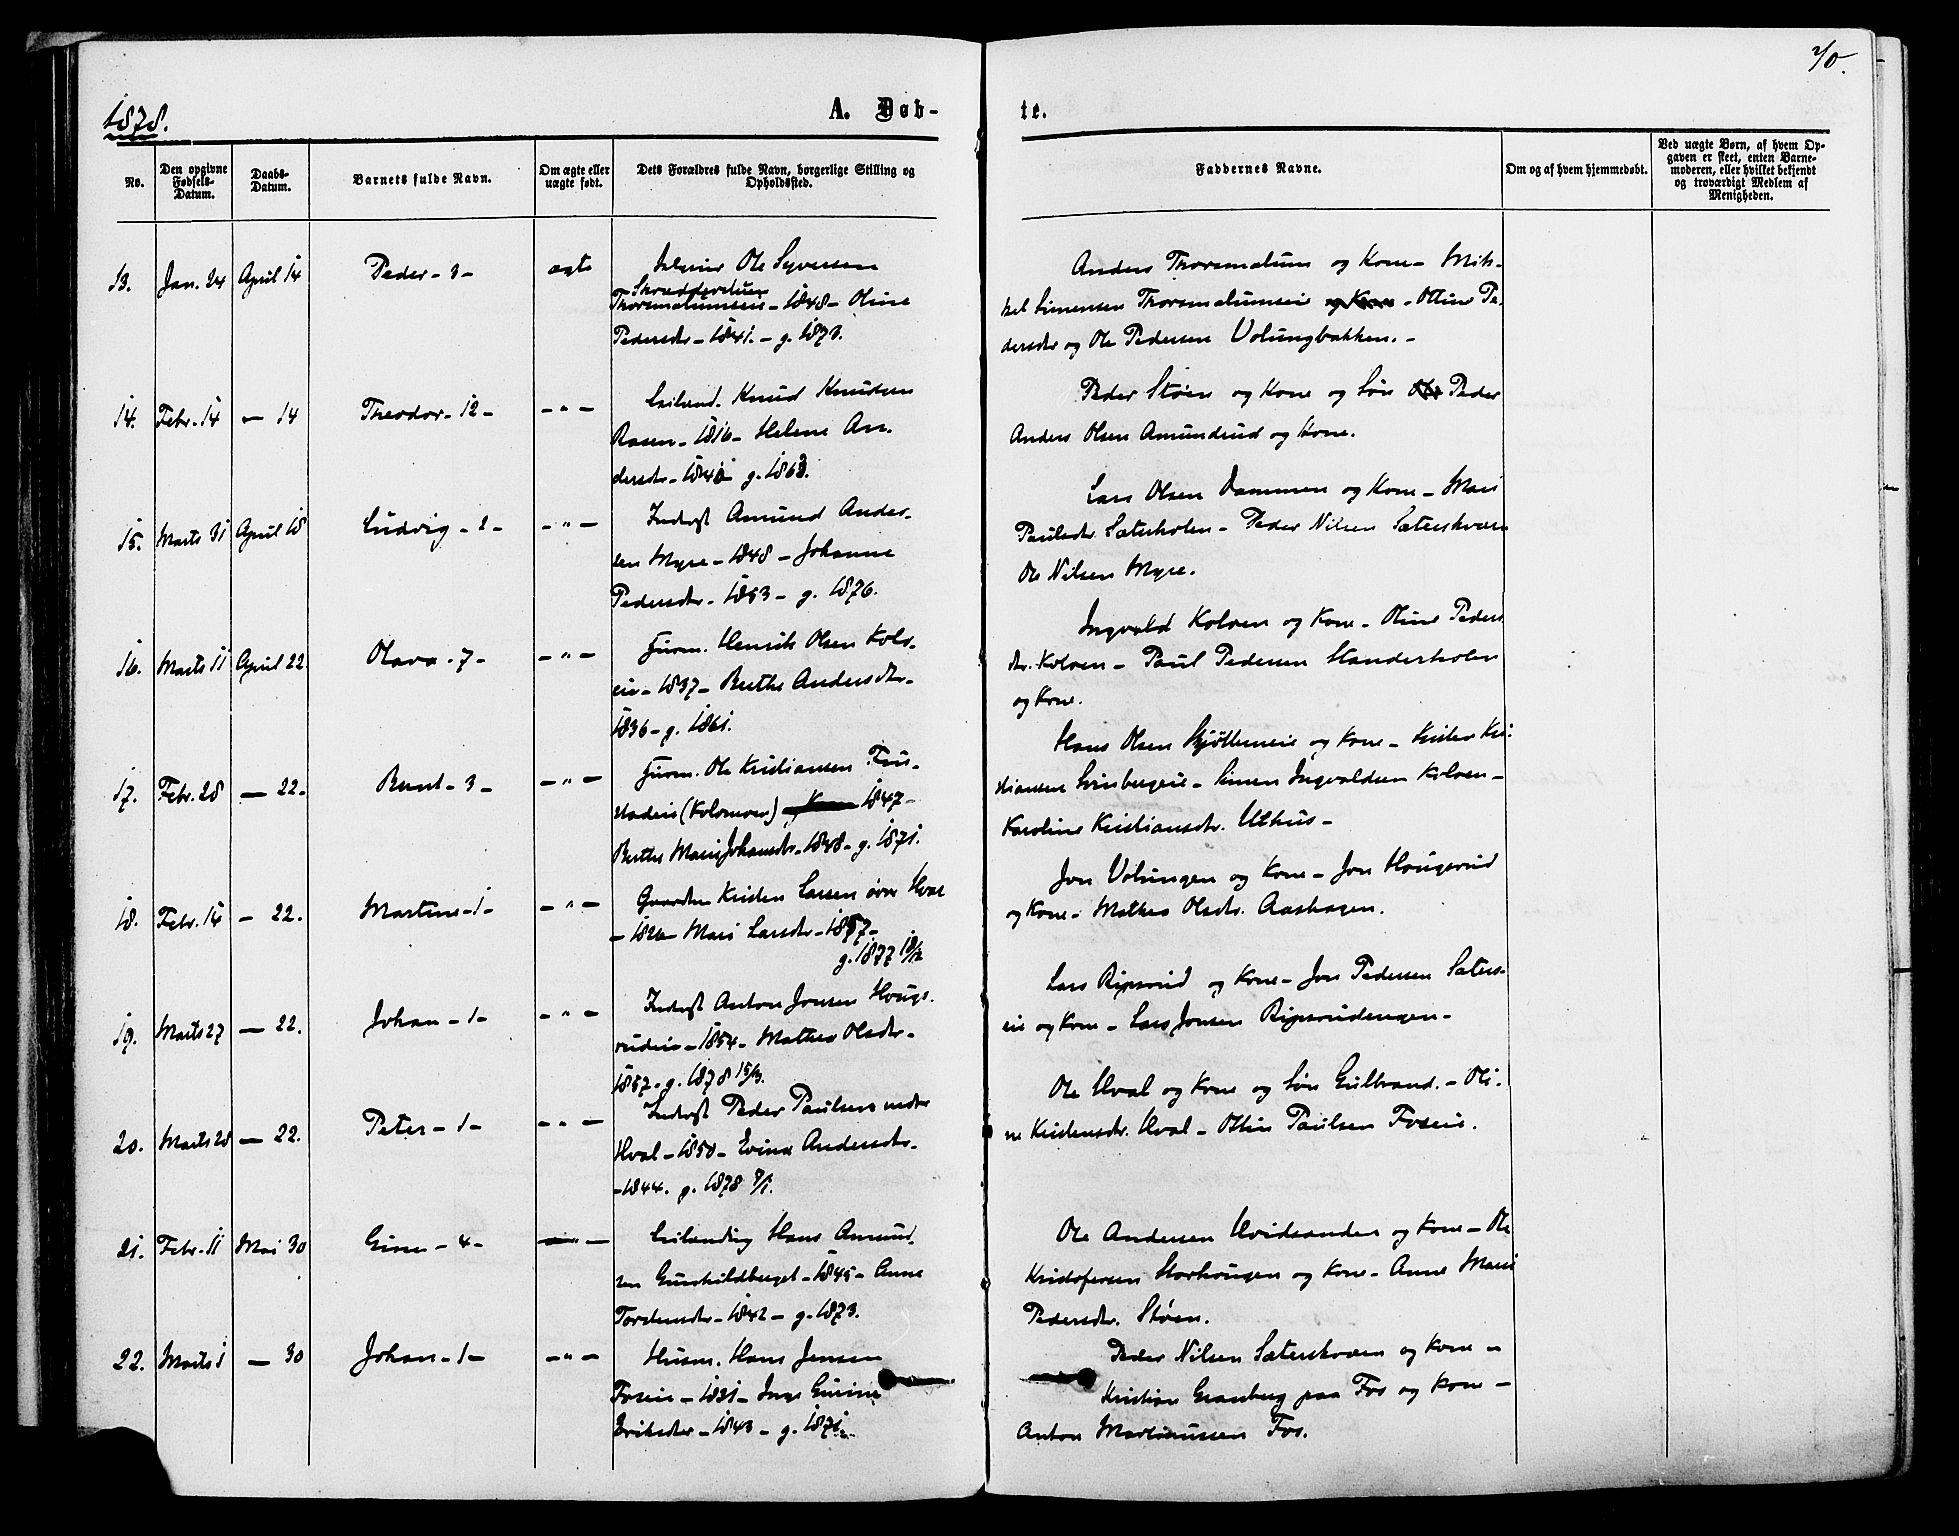 70.
1878.
A. Døb-
te.
No.
Den opgivne Fødsels-Datum.
Daabs-Datum.
Barnets fulde Navn.
Om ægte eller uægte født.
Dets Forældres fulde Navn, borgerlige Stilling og Opholdssted.
Faddernes Navne.
Om og af hvem hjemmedøbt.
Ved uægte Børn, af hvem Opgaven er skeet, enten Barnemoderen, eller hvilket bekjendt og troværdigt Medlem af Menigheden.
13. Jan. 24 April 14 Peder - 3 - ægte
Ole Syversen
Thorsmalumseie - 1848 - Oline
Pedersdtr - 1841. - g. 1873.
Anders Thorsmalum og Kone - Mik-
kel Simensen Thorsmalumseie og Kone - Pe-
dersdtr og Ole Pedersen Volungbakken. -
14. Febr. 14 — 14 Theodor - 12 - - " -
Leilænd. Knud Knudsen
Rasen - 1816 - Helene An-
dersdtr - g. 1863.
Peder Støen og Kone og Søn Peder
Anders Olsen Amundrud og Kone.
15. Marts 31 April 18 Ludvig - 2 - - " -
Inderst Amund Ander-
sen Myre - 1848 - Johanne
Pedersdtr - 1853 - g. 1876.
Lars Olsen Dammen og Kone - Mari
Paulsdtr. Sæterholen - Peder Nilsen Sæterskvæen
Ole Nilsen Myre.
16. Marts 11 April 22 Olava - 7 - - " -
Husm. Henrik Olsen Kolo-
eie - 1837 - Berthe Andersdtr -
1836 - g. 1861.
Ingvald Koloen og Kone - Oline Peders
dtr. Koloen - Paul Pedersen Standerholen
og Kone.
17. Febr. 28 — 22. Bernt - 3 - - " -
Husm. Ole Kristiansen
(Kolomoen) 1847 -
Berthe Marie Johansdtr - 1848 - g. 1871.
Hans Olsen og Kone - Kristen Kri-
stiansen Svinbergeie - Simen Ingvaldsen Koloen -
Karoline Kristiansdtr. Uthus -
18. Febr. 14 — 22. Martine - 1 - - " -
Gaardm Kristen Larsen øvre Hval
- 1826 - Mari Larsdtr - 1857 -
g. 1877
Jon Volungen og Kone - Jon Hougsrud
og Kone - Mathea Olsdtr. Aashagen.
19. Marts 27 — 22. Johan - 1 - - " -
Inderst Anton Jonsen Hougs-
rudeie - 1854 - Mathea Olsdtr -
1857 - g. 1878 15/3.
Lars Ripsrud og Kone - Jon Pedersen Sæters-
eie og Kone - Lars Jonsen Ripsrudengen -
20. Marts 28 — 22. Peter - 1 - - " -
Inderst Peder Paulsen nedre
Hval - 1850 - Evina Andersdtr -
- 1844. g. 1878
Ole Hval og Kone og Søn Gulbrand. - Oli-
ne Kristensdtr. Hval - Ottin Paulsen Foseie.
21. Febr. 11 Mai 30 Gine - 4 - - " -
Leilænding Hans Amund-
sen Gunhildberget - 1845 - Anne
Tordensdtr - 1842 - g. 1873.
Ole Andersen Hvidsanden og Kone - Ole
Kristofersen Storhougen og Kone - Anne Marie
Pedersdtr. Støen.
22. Marts 1 — 30 Johan - 1 - - " -
Husm. Hans Jensen
Foseie - 1831 - Inge Gurine
Eriksdtr - 1843 - g. 1871.
Peder Nilsen Sæterskvæen og Kone -
Kristian Granberg paa Fos og Kone -
Anton Martinussen Fos.